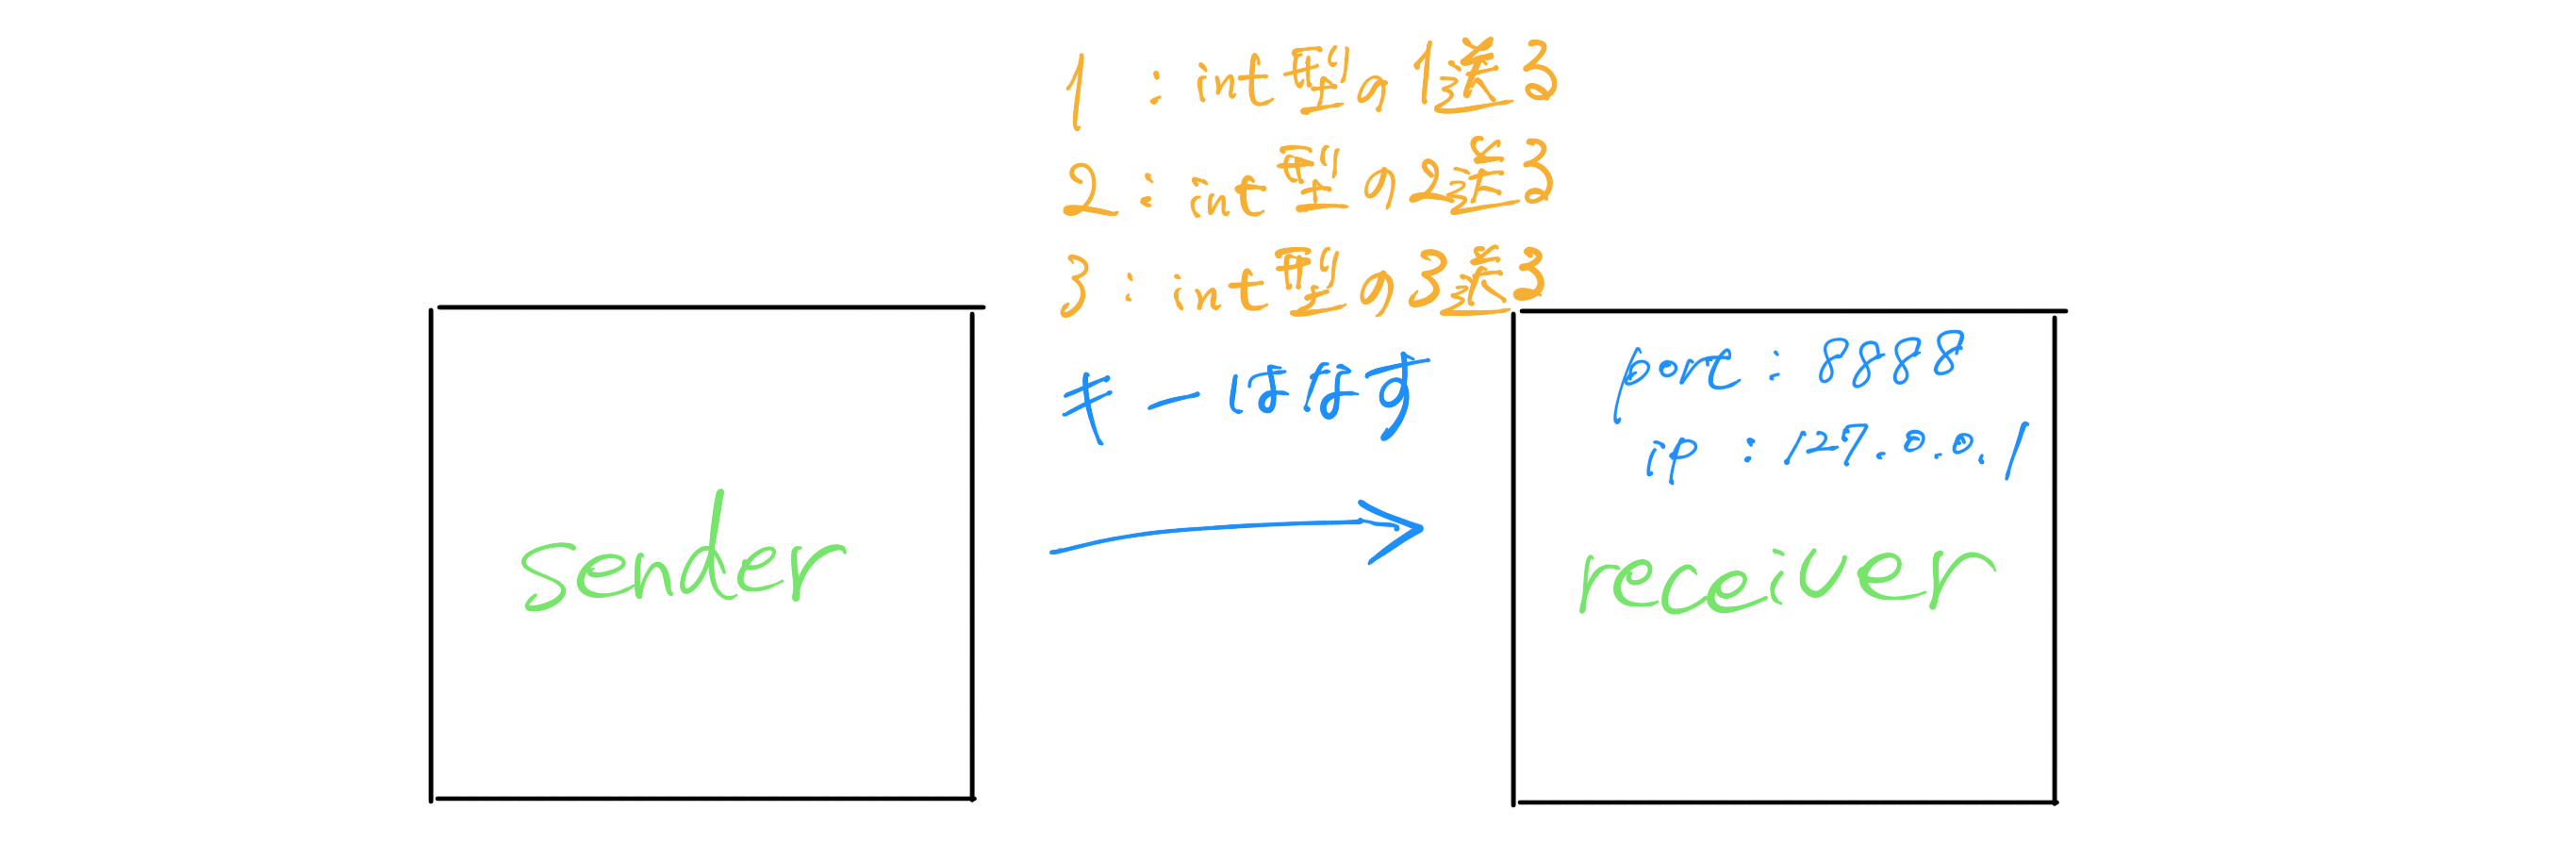 1 : int型の1送る
2 : int型の2送る
3 : int型の3送る
キーはなす
port : 8888
ip : 127.0.0.1
sender
receiver